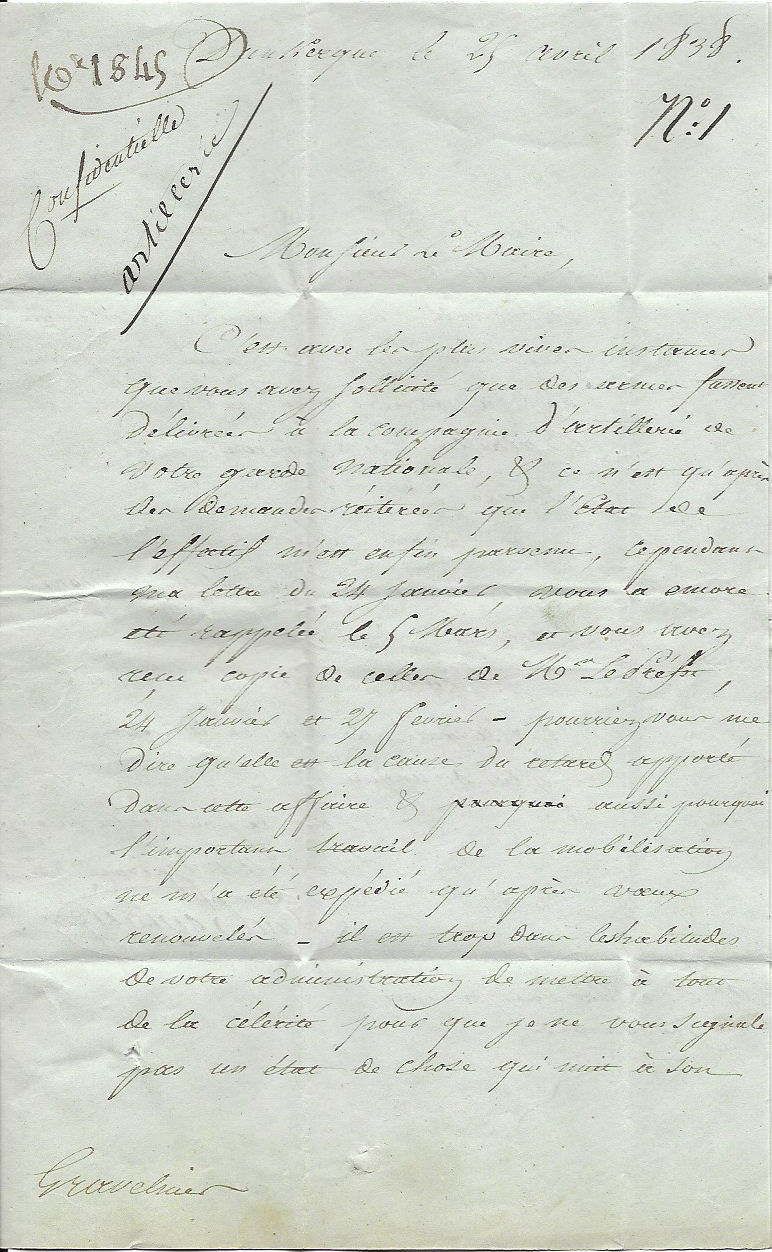 Dunkerque le 25 avril 1838.
1845
N° 1
Confidentielle
artillerie
Monsieur Le Maire,
C'est avec les plus vives instances
que vous avez sollicité que des armes fussent
délivrées à la compagnie d'artillerie de
votre garde nationale, & ce n'est qu'après
des demandes réitérées que l'état de
l'effectif m'est enfin parvenu, cependant
ma lettre du 24 Janvier vous a encore
été rappelée le 5 Mars, et vous avez
recu copie de celles de Mr Le Préfet,
24 Janvier et 27 fevrier - pourriez vous me
dire qu'elle est la cause du retard apporté
dans cette affaire & pourquoi aussi pourquoi
l'important travail de la mobilisation
ne m'a été expédié qu'après vœux
renouvelés - il est trop dans les habitudes
de votre administration de mettre à tout
de la célérité pour que je ne vous signale
pas un état de chose qui nuit à son
Gravelines